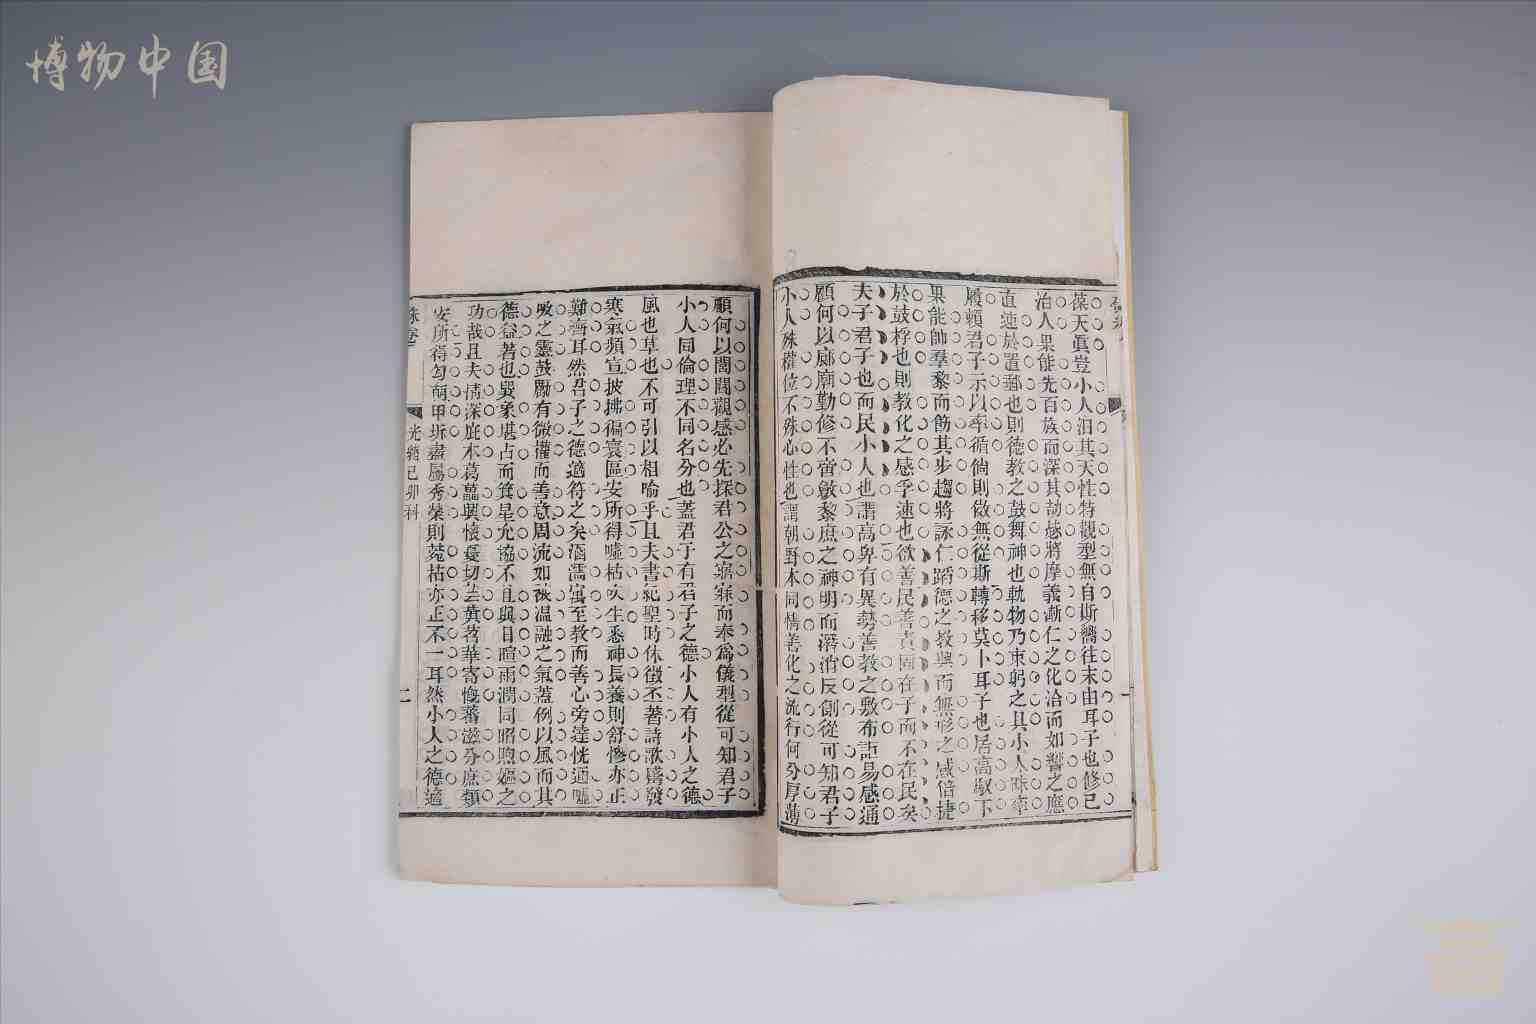 博物中国
葆天眞豈小人汨其天性特觀型無自斯嚮往未由耳子也修已
治人果能先百族而深其劼毖將摩義漸仁之化洽而如響之應
直速於置郵也則德教之鼓舞神也軌物乃東躬之具小人昧率
履賴君子示以率循倘則傚無從斯轉移莫卜耳子也居高馭下
果能帥羣黎而飭其步趨將詠仁蹈德之教興而無形之感倍捷
於鼓桴也則教化之感孚速也欲善民善責固在子而不在民矣
夫子君子也而民小人也謂高卑有異勢善教之敷布詎易感通
顧何以廊廟勤修不啻黎庶之神明而潛消反側從可知君子
小人殊權位不殊心性也謂朝野本同情善化之流行何分厚薄
顧何以閭閻觀感必先探君公之寤寐而奉爲儀型從可知君子
小人同倫理不同名分也蓋君子有君子之德小人有小人之德
風也草也不可引以相喻乎且夫書紀聖時休徵丕著詩歌觱發
寒氣頻宣披拂徧寰區安所得噓枯吹生悉神長養則舒慘亦正
難齊耳然君子之德適符之矣涵濡寓至教而善心旁達恍通噓
吸之靈鼓勵有微權而善意周流如被温融之氣蓋例以風而其
德益著也巽象堪占而箕星允協不且與日暄雨潤同昭煦嫗之
功哉且夫情深庇本葛藟興懷憂切萇苕華寄慨蕃滋分庶類
安所得勾萌甲坼盡屬秀榮則菀枯亦正不一耳然小人之德適
硃卷
光緒己卯科
二